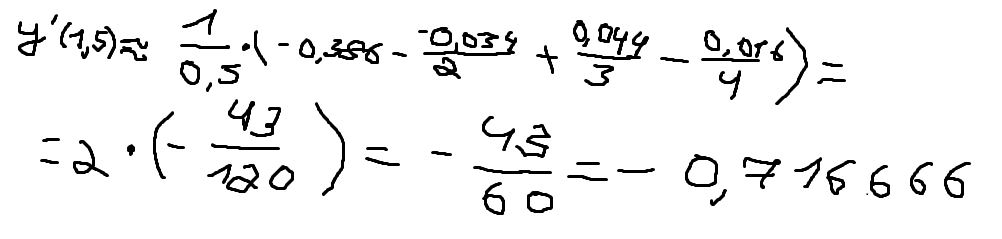 y'(1,5) ≈ \frac{1}{0,5} · (-0,386 - \frac{-0,034}{2} + \frac{0,044}{3} - \frac{0,016}{4}) =
= 2 · (-\frac{43}{120}) = -\frac{43}{60} = -0,716666